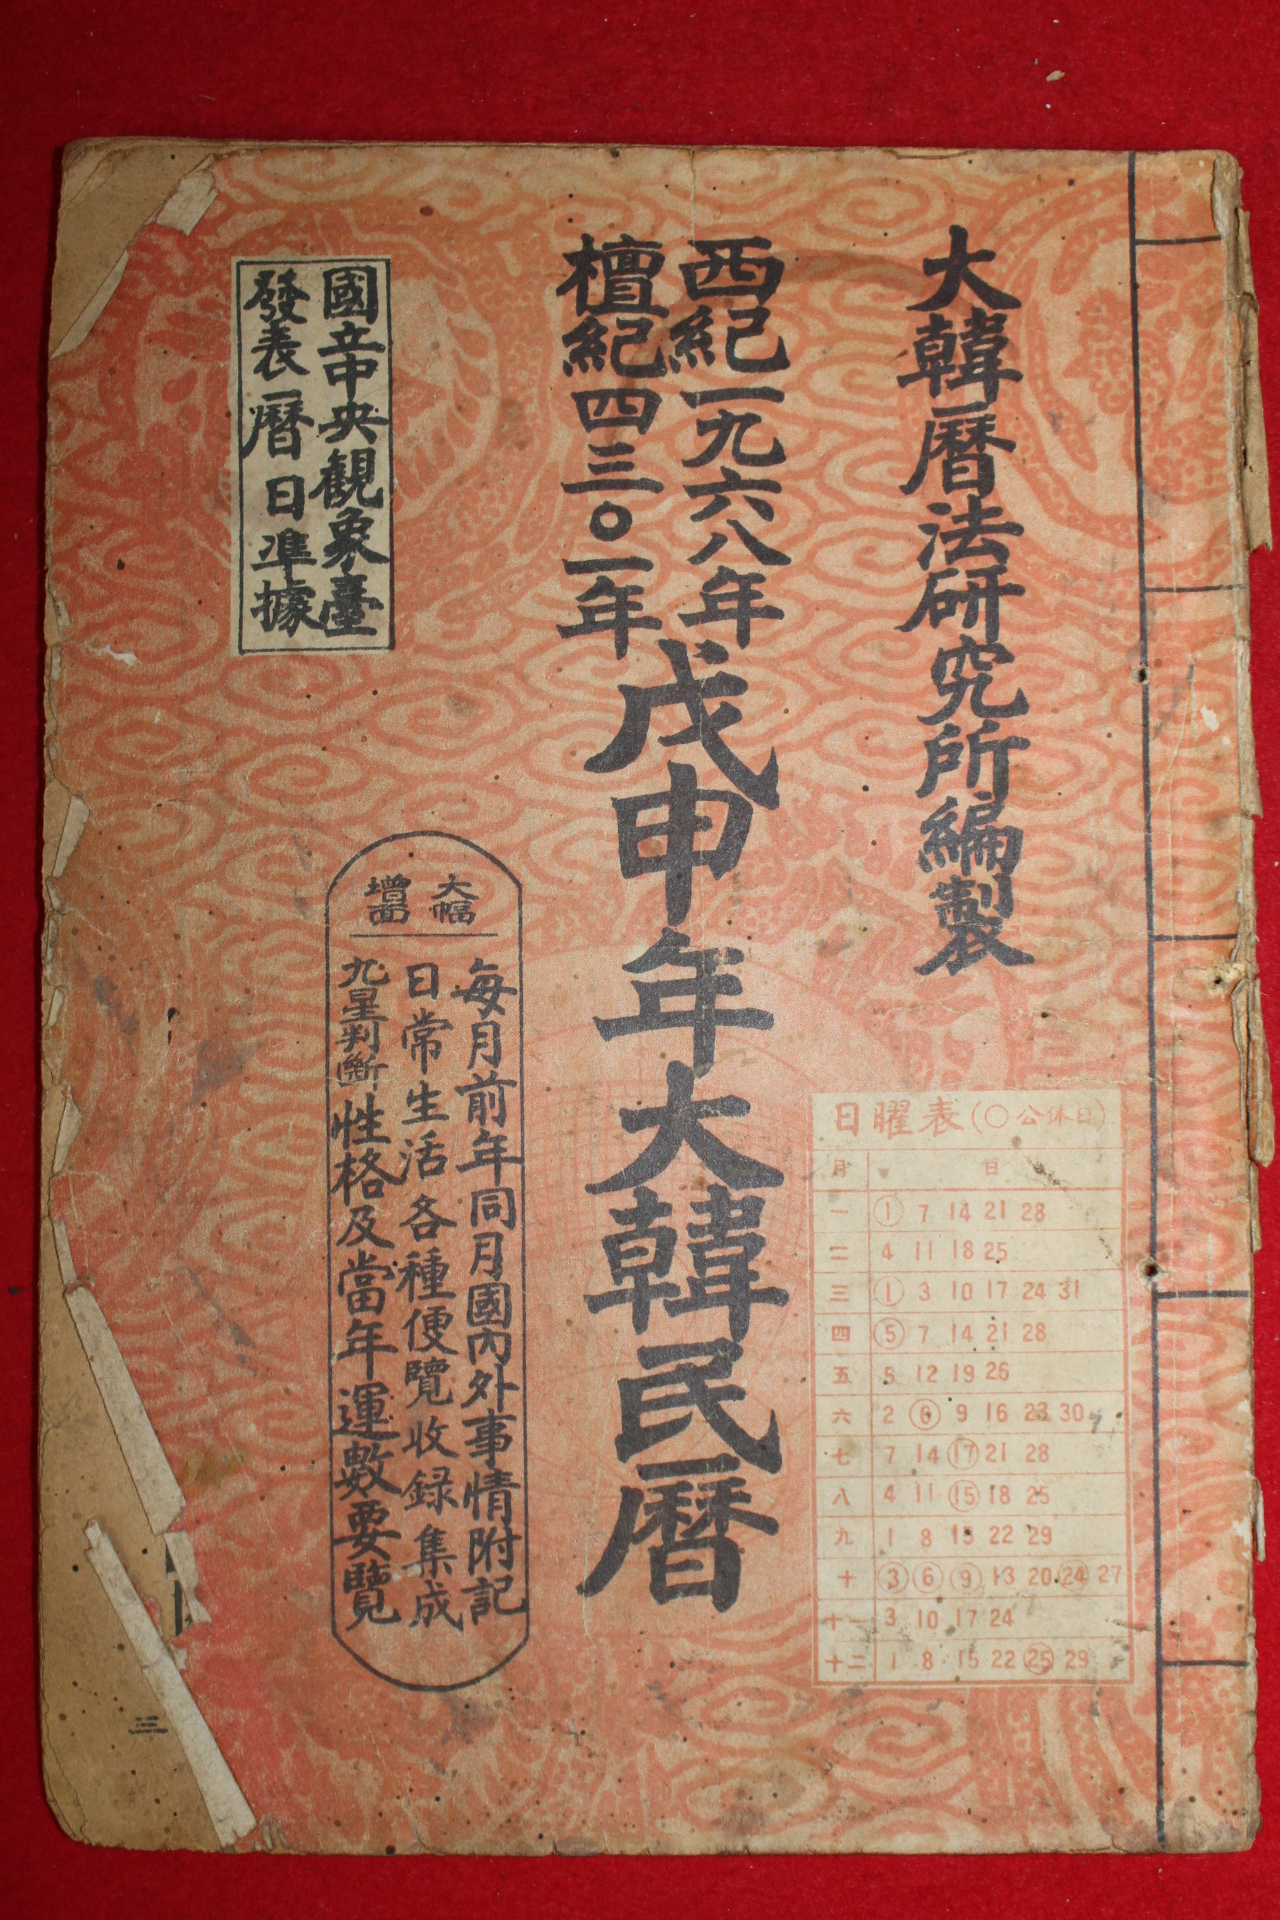 大韓曆法硏究所編製
西紀一九六八年
檀紀四三〇一年
戊申年大韓民曆
國立中央觀象臺
發表曆日準據
大幅
增面
每月前年同月國內外事情附記
日常生活各種便覽收録集成
九星判斷性格及當年運數要覽
日曜表(〇公休日)
月 日
一 1 7 14 21 28
二 4 11 18 25
三 1 3 10 17 24 31
四 5 7 14 21 28
五 5 12 19 26
六 2 6 9 16 23 30
七 7 14 17 21 28
八 4 11 15 18 25
九 1 8 15 22 29
十 3 6 9 13 20 24 27
十一 3 10 17 24
十二 1 8 15 22 25 29
三